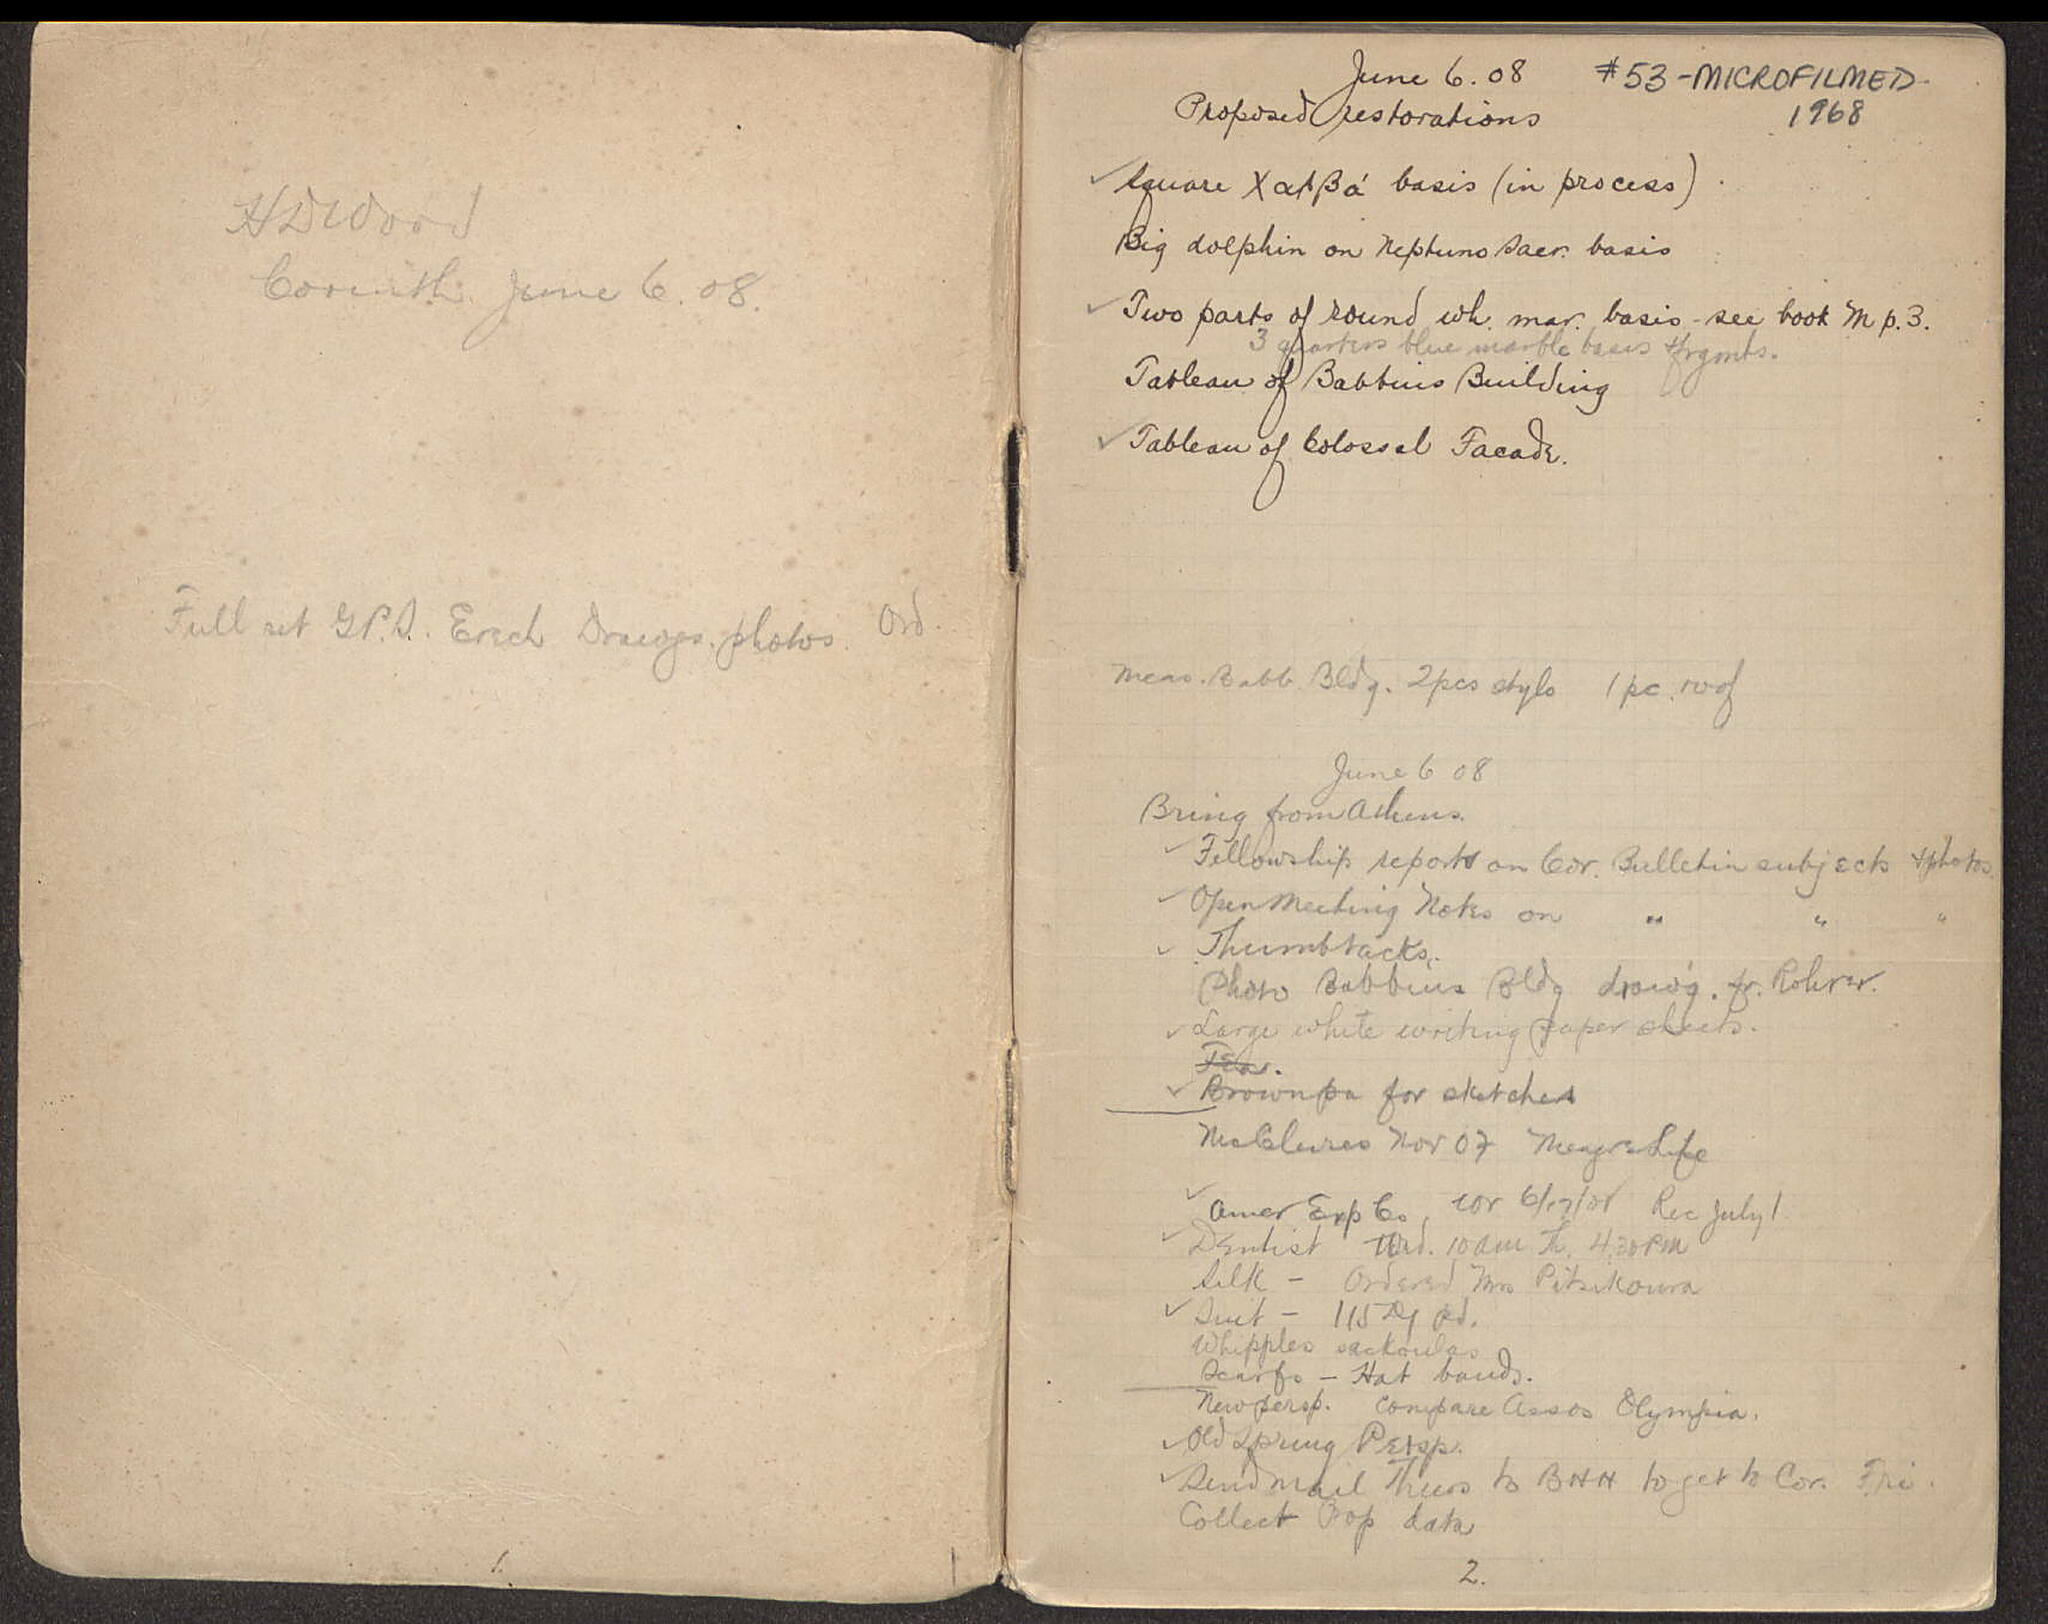 HDWood
Corinth June 6. 08.
Full set G.P.S. Erech Drawgs. photos. Ord.
1.
June 6. 08
#53-MICROFILMED
1968
Proposed restorations
Square basis (in process)
Big dolphin on Neptuno Sacr. basis
Two parts of round wh. mar. basis - see book M p. 3.
3 quarters blue marble bases + frgmts.
Tableau of Babbius Building
Tableau of Colossal Facade.
Meas. Babb. Bldg. 2 pcs stylo 1 pc. roof
June 6 08
Bring from Athens.
Fellowship reports on Cor. Bulletin subjects + photos
Open Meeting Notes on " " "
Thumbtacks.
Photo Babbius Bldg drawg. fr. Rohrer.
Large white writing paper sheets.
Brown pa for sketches
McClures Nov 07
Amer Exp Co, Rec July 1
Dentist Wed. 10 am Th. 4.30 PM
Silk - Ordered Mrs Pitsikoura
Suit - 115 pd.
Whipples sackoulas
Scarfs - Hat bands.
New persp. Compare Assos Olympia.
Old Spring Persp.
Send mail Thurs to BHH to get to Cor. Fri.
Collect data
2.